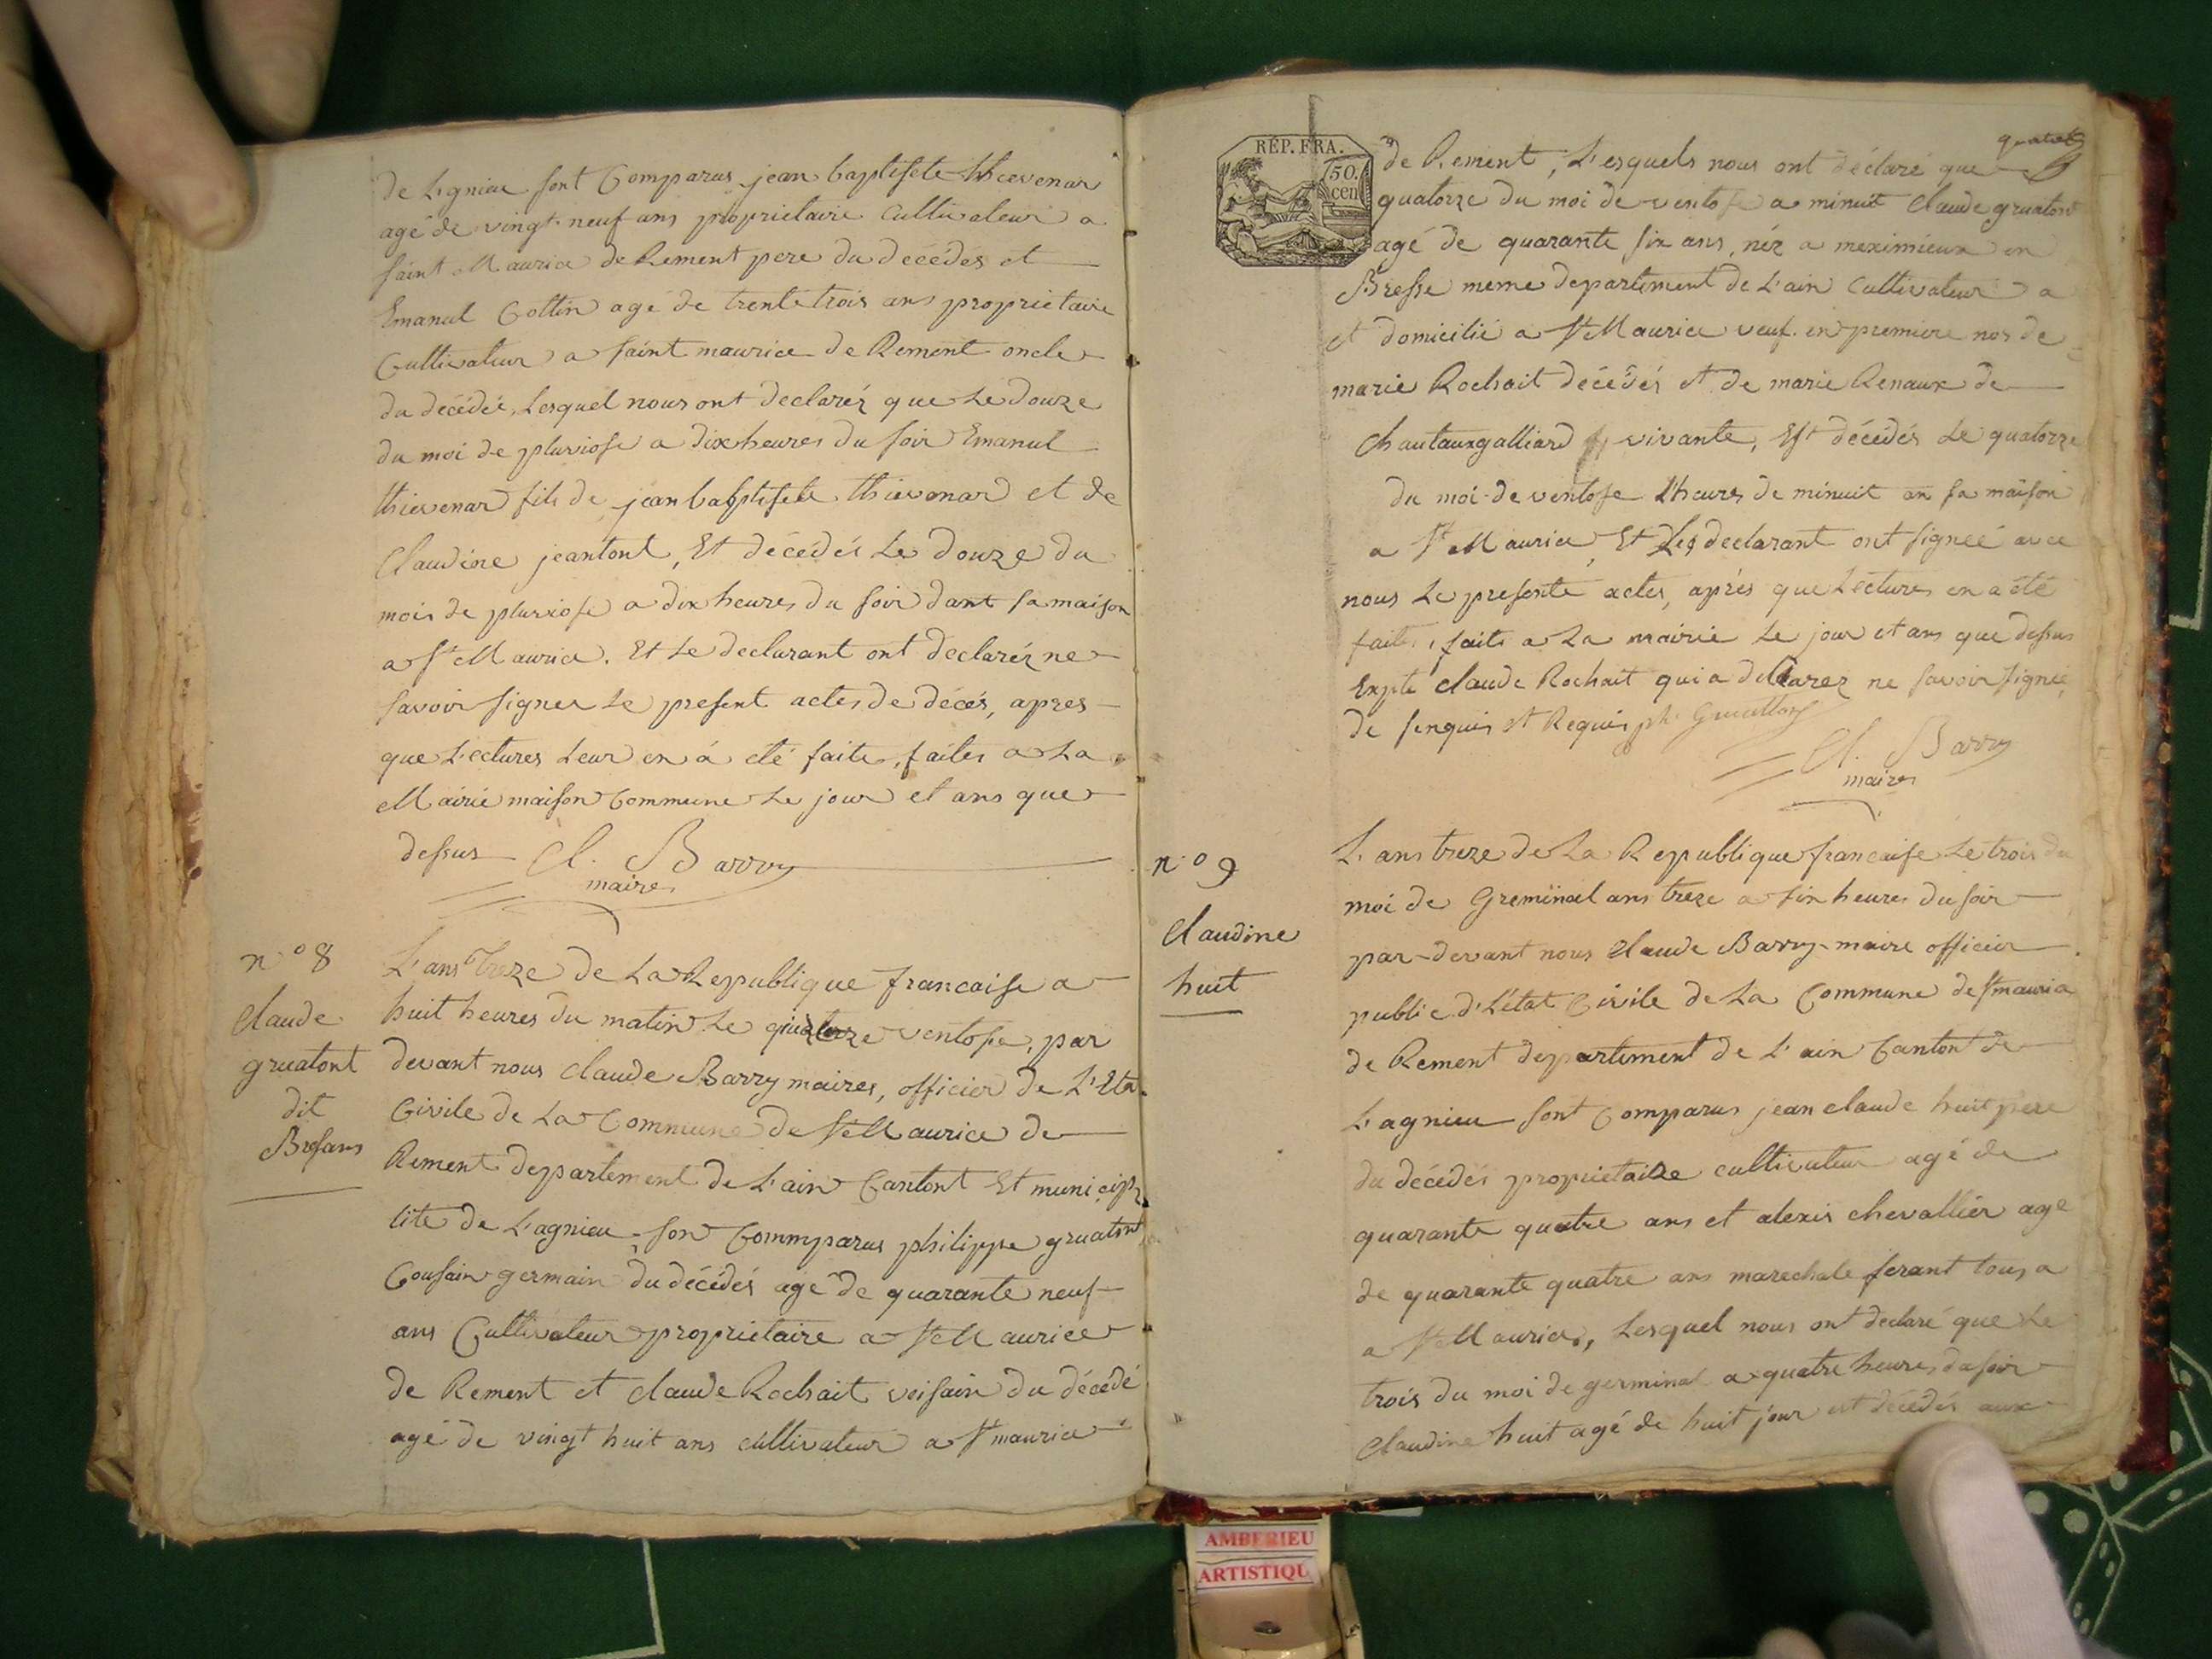 de Lagnieu sont Comparus jean baptisete thievenar
agé de vingt-neuf ans proprietaire Cultivateur a
saint Maurice de Rement pere du décédés et
Emanuel Cottin agé de trente trois ans proprietaire
Cultivateur a saint maurice de Rement oncle
du décédée, Lesquel nous ont declaréz que Le douze
du moi de pluviose a dix heures du soir Emanuel
thievenar fils de jean baptisete thievenar et de
Claudine jeantont, Est décédés Le douze du
mois de pluviose a dix heures du soir dant sa maison
a St Maurice. Et Le declarant ont declaréz ne
savoir signer Le present actes de décés, apres
que Lectures Leur en á eté faite, faites a La
Mairie maison Commune Le jour et ans que
dessus Cl. Barry
maires
n.° 8
Claude
gruatont
dit
Bresans
L'ans treze de La Republique francaise a
huit heures du matin Le quatorze ventose, par
devant nous Claude Barry maires, officier de L'Eta
Civile de La Commune de St Maurice de
Rement departement de L'ain Cantont Et municipa
lité de Lagnieu, son Commparus philippe gruatont
Cousain germain du décédés agé de quarante neuf
ans Cultivateur proprietaire a St Maurice
de Rement et claude Rochait voisain du décédé
agé de vingt huit ans cultivateur a St maurice
RÉP. FRA.
50.
cen
de Rement, Lesquels nous ont déclaré que
quatorze du moi de ventose a minuit Claude gruatont
agé de quarante six ans, néz a meximieux en
Bresse meme departement de L'ain Cultivateur a
et domicilié a St Maurice veuf. en premiere nos de
marie Rochait décédés et de marie Renaux de
Chautauxgalliard vivante, Est décédés Le quatorze
du moi de ventose L'heures de minuit an sa maison
a St Maurice, Et Les declarant ont signeé avec
nous Le presente actes, aprés que Lectures en a été
faite, faite a La mairie Le jour et ans que dessus
Expté claude Rochait qui a declarez ne savoir signée
de senquis et Requis ph. Gruatton
Cl. Barry
maires
n.° 9
Claudine
huit
L'ans treze de La Republique francaise Le trois du
moi de Greminal ans treze a six heures du soir
par-devant nous Claude Barry maire officier
public d'Létat Civile de La Commune de St mauria
de Rement departement de L'ain Canton de
Lagnieu sont Comparus jean claude huit pere
du décédés proprietaire cultivateur agé de
quarante quatre ans et alexis chevallier age
de quarante quatre ans marechale ferant tous a
a St Maurice, Lesquel nous ont declaré que Le
trois du moi de germinal a quatre heures du soir
Claudine huit agé de huit jour est décédés aux
AMBERIEU
ARTISTIQU